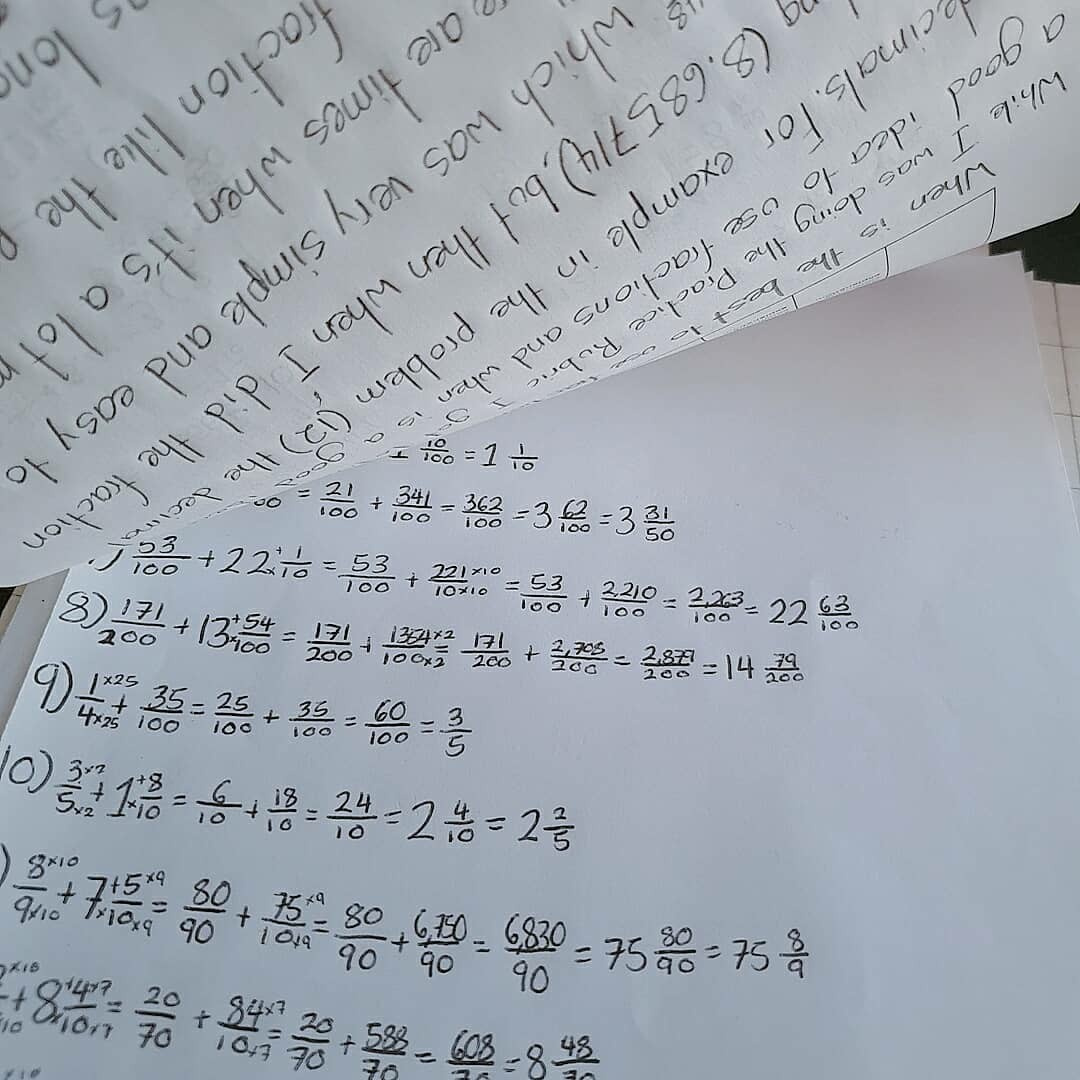 When is the best to use
While I was doing the Practice Rubric I
a good idea to use fractions and when is a good
decimals. For example in the problem (12) the
(8.685714), but then when I did the fraction
which was very simple and easy to
are times when it's a lot
fraction like the
10/100 = 1 1/10
= 21/100 + 341/100 = 362/100 = 3 62/100 = 3 31/50
) 53/100 + 22 +×1/10 = 53/100 + 221×10/10×10 = 53/100 + 2,210/100 = 2,263/100 = 22 63/100
8) 171/200 + 13 +×54/100 = 171/200 + 1354×2/100×2 = 171/200 + 2,708/200 = 2,879/200 = 14 79/200
9) 1×25/4×25 + 35/100 = 25/100 + 35/100 = 60/100 = 3/5
10) 3×2/5×2 + 1 +×8/10 = 6/10 + 18/10 = 24/10 = 2 4/10 = 2 2/5
) 8×10/9×10 + 7 +×5×9/10×9 = 80/90 + 75×9/10×9 = 80/90 + 6,750/90 = 6,830/90 = 75 80/90 = 75 8/9
+ 8 +×4×7/10×7 = 20/70 + 84×7/10×7 = 20/70 + 588/70 = 608/70 = 8 48/70